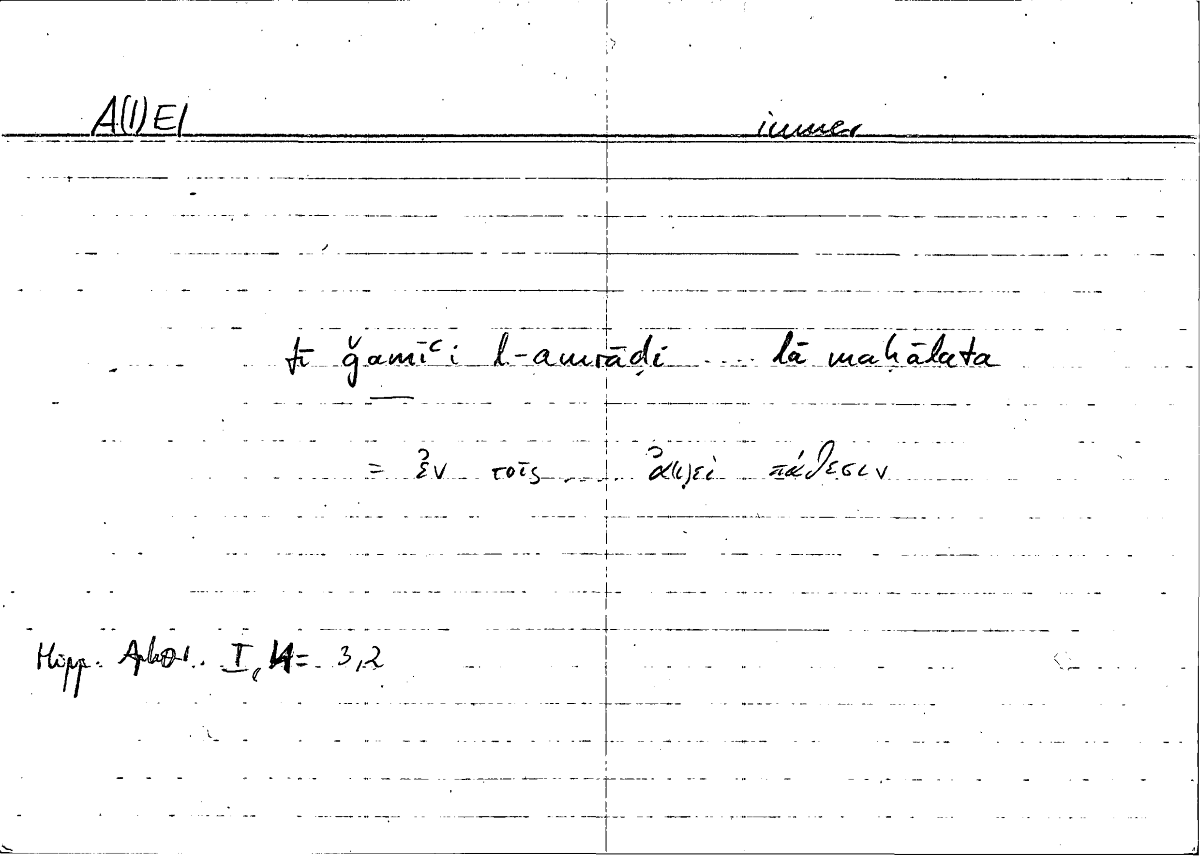 A(I)EI immer
fī ǧamīʿi l-amrāḍi .... lā maḥālata
= ἐν τοῖς ...... ἀ(ι)εὶ πάθεσιν
Hipp. Aphor. I, 4 = 3,2